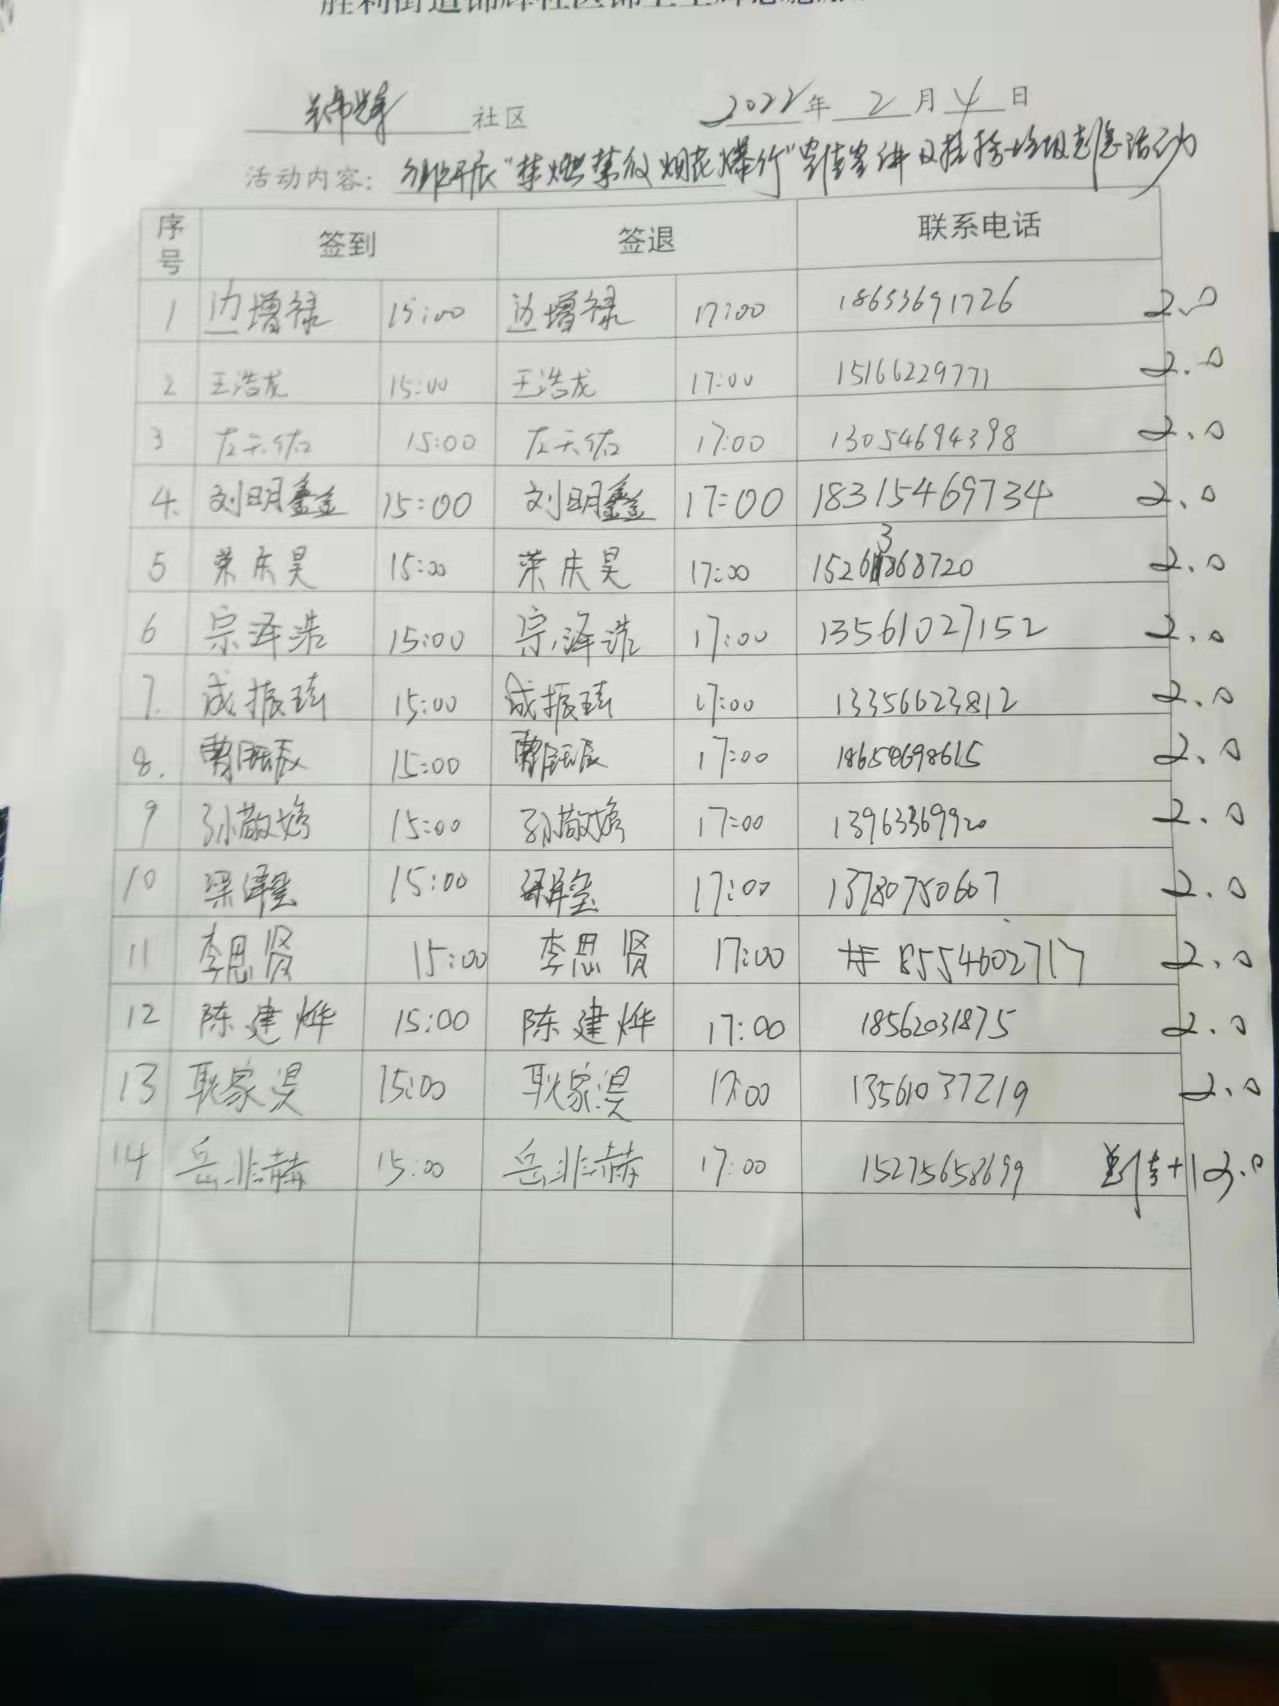 锦辉 社区 2022年 2 月 4 日
活动内容: 开展"禁燃禁放烟花爆竹"宣传宣讲及捡拾垃圾志愿活动
序号 签到 签退 联系电话
1 边增禄 15:00 边增禄 17:00 18653691726 2.0
2 王浩龙 15:00 王浩龙 17:00 15166229771 2.0
3 左天佑 15:00 左天佑 17:00 13054694398 2.0
4. 刘明鑫 15:00 刘明鑫 17:00 18315469734 2.0
5 荣庆昊 15:00 荣庆昊 17:00 15263868720 2.0
6 宗泽浩 15:00 宗泽浩 17:00 13561027152 2.0
7. 成振 15:00 成振 17:00 13356623812 2.0
8. 曹 辰 15:00 曹 辰 17:00 2.0
9 孙敬 15:00 孙敬 17:00 13963369920 2.0
10 梁泽玺 15:00 梁泽玺 17:00 13780750607 2.0
11 李思贤 15:00 李思贤 17:00 18554602717 2.0
12 陈建烨 15:00 陈建烨 17:00 18562031875 2.0
13 耿家淏 15:00 耿家淏 17:00 13561037219 2.0
14 岳非赫 15:00 岳非赫 17:00 15275658699 宣传+1 3.0